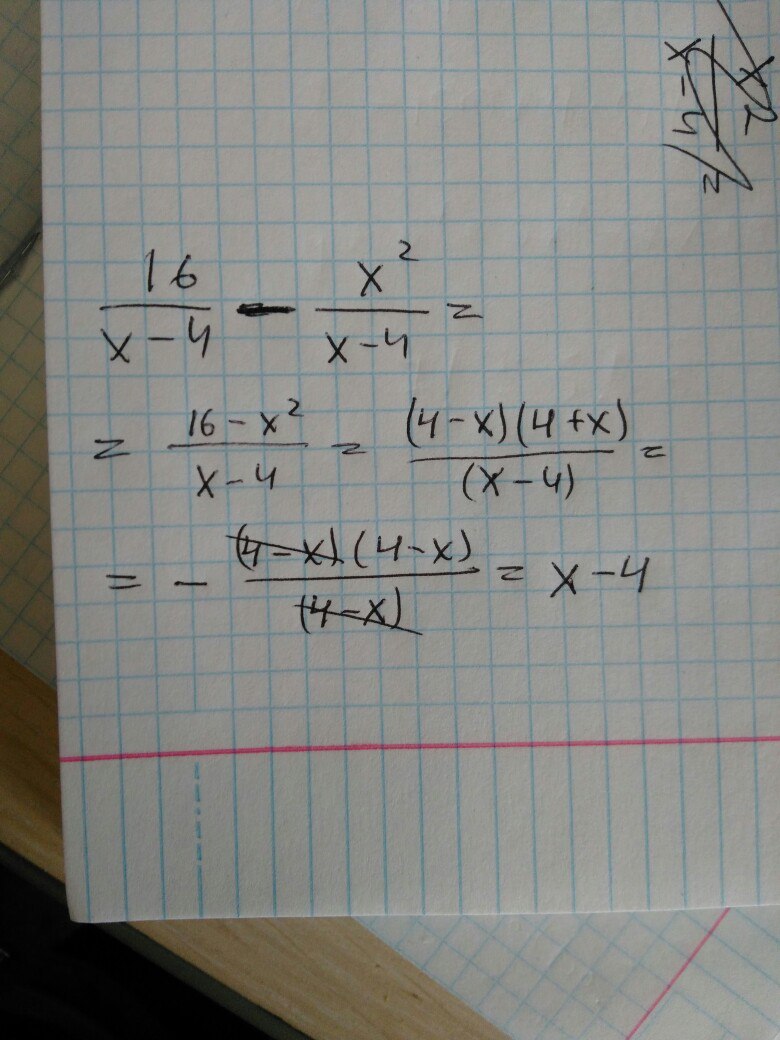 16/(x-4) - x²/(x-4) =
= (16-x²)/(x-4) = (4-x)(4+x)/(x-4) =
= - (4-x)(4-x)/(4-x) = x-4